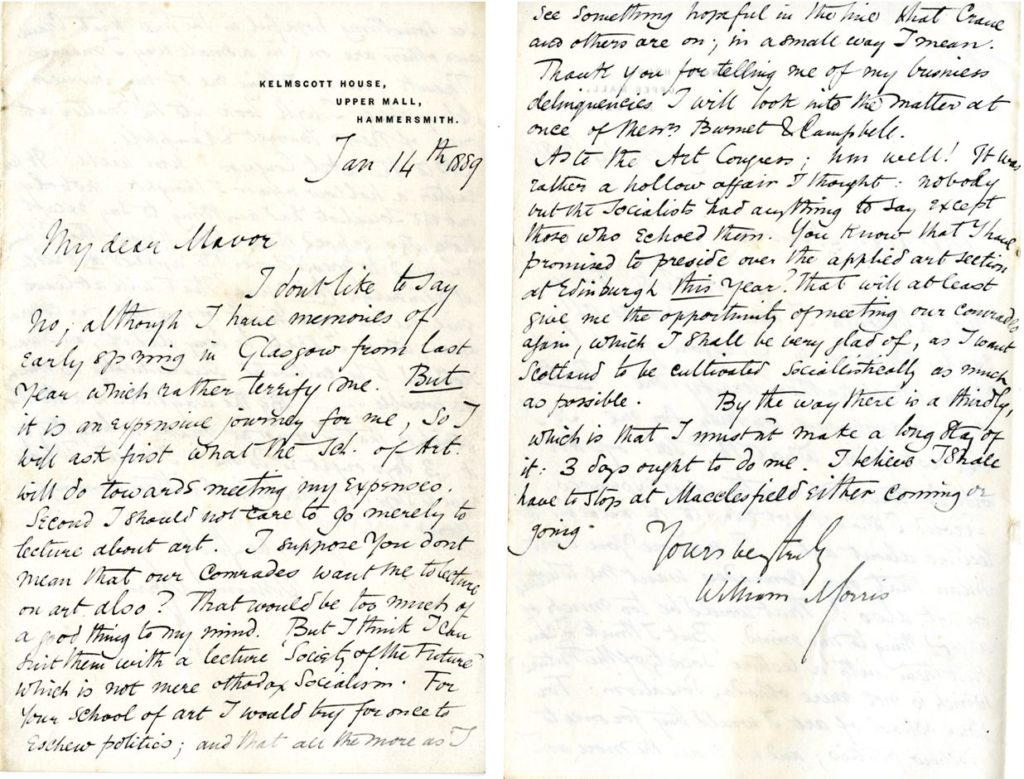 KELMSCOTT HOUSE,
UPPER MALL,
HAMMERSMITH.
Jan 14th 1889
My dear Mavor
I don't like to say
no; although I have memories of
early spring in Glasgow from last
year which rather terrify me. But
it is an expensive journey for me, so I
will ask first what the Sch. of Art
will do towards meeting my expenses.
Second I should not care to go merely to
lecture about art. I suppose you dont
mean that our comrades want me to lecture
on art also? That would be too much of
a good thing to my mind. But I think I can
suit them with a lecture 'Society of the Future'
which is not mere othodox Socialism. For
your school of art I would try for once to
eschew politics; and that all the more as I
see something hopeful in the line that Crane
and others are on; in a small way I mean.
Thank you for telling me of my business
delinquencies I will look into the matter at
once of Messrs Burnet & Campbell.
As to the Art Congress; hm well! It was
rather a hollow affair I thought: nobody
but the Socialists had anything to say except
those who echoed them. You know that I have
promised to preside over the applied art section
at Edinburgh this year? that will at least
give me the opportunity of meeting our comrades
again, which I shall be very glad of, as I want
Scotland to be cultivated Socialistically as much
as possible. By the way there is a thirdly,
which is that I mustn't make a long stay of
it: 3 days ought to do me. I believe I shall
have to stop at Macclesfield either coming or
going.
Yours very truly
William Morris